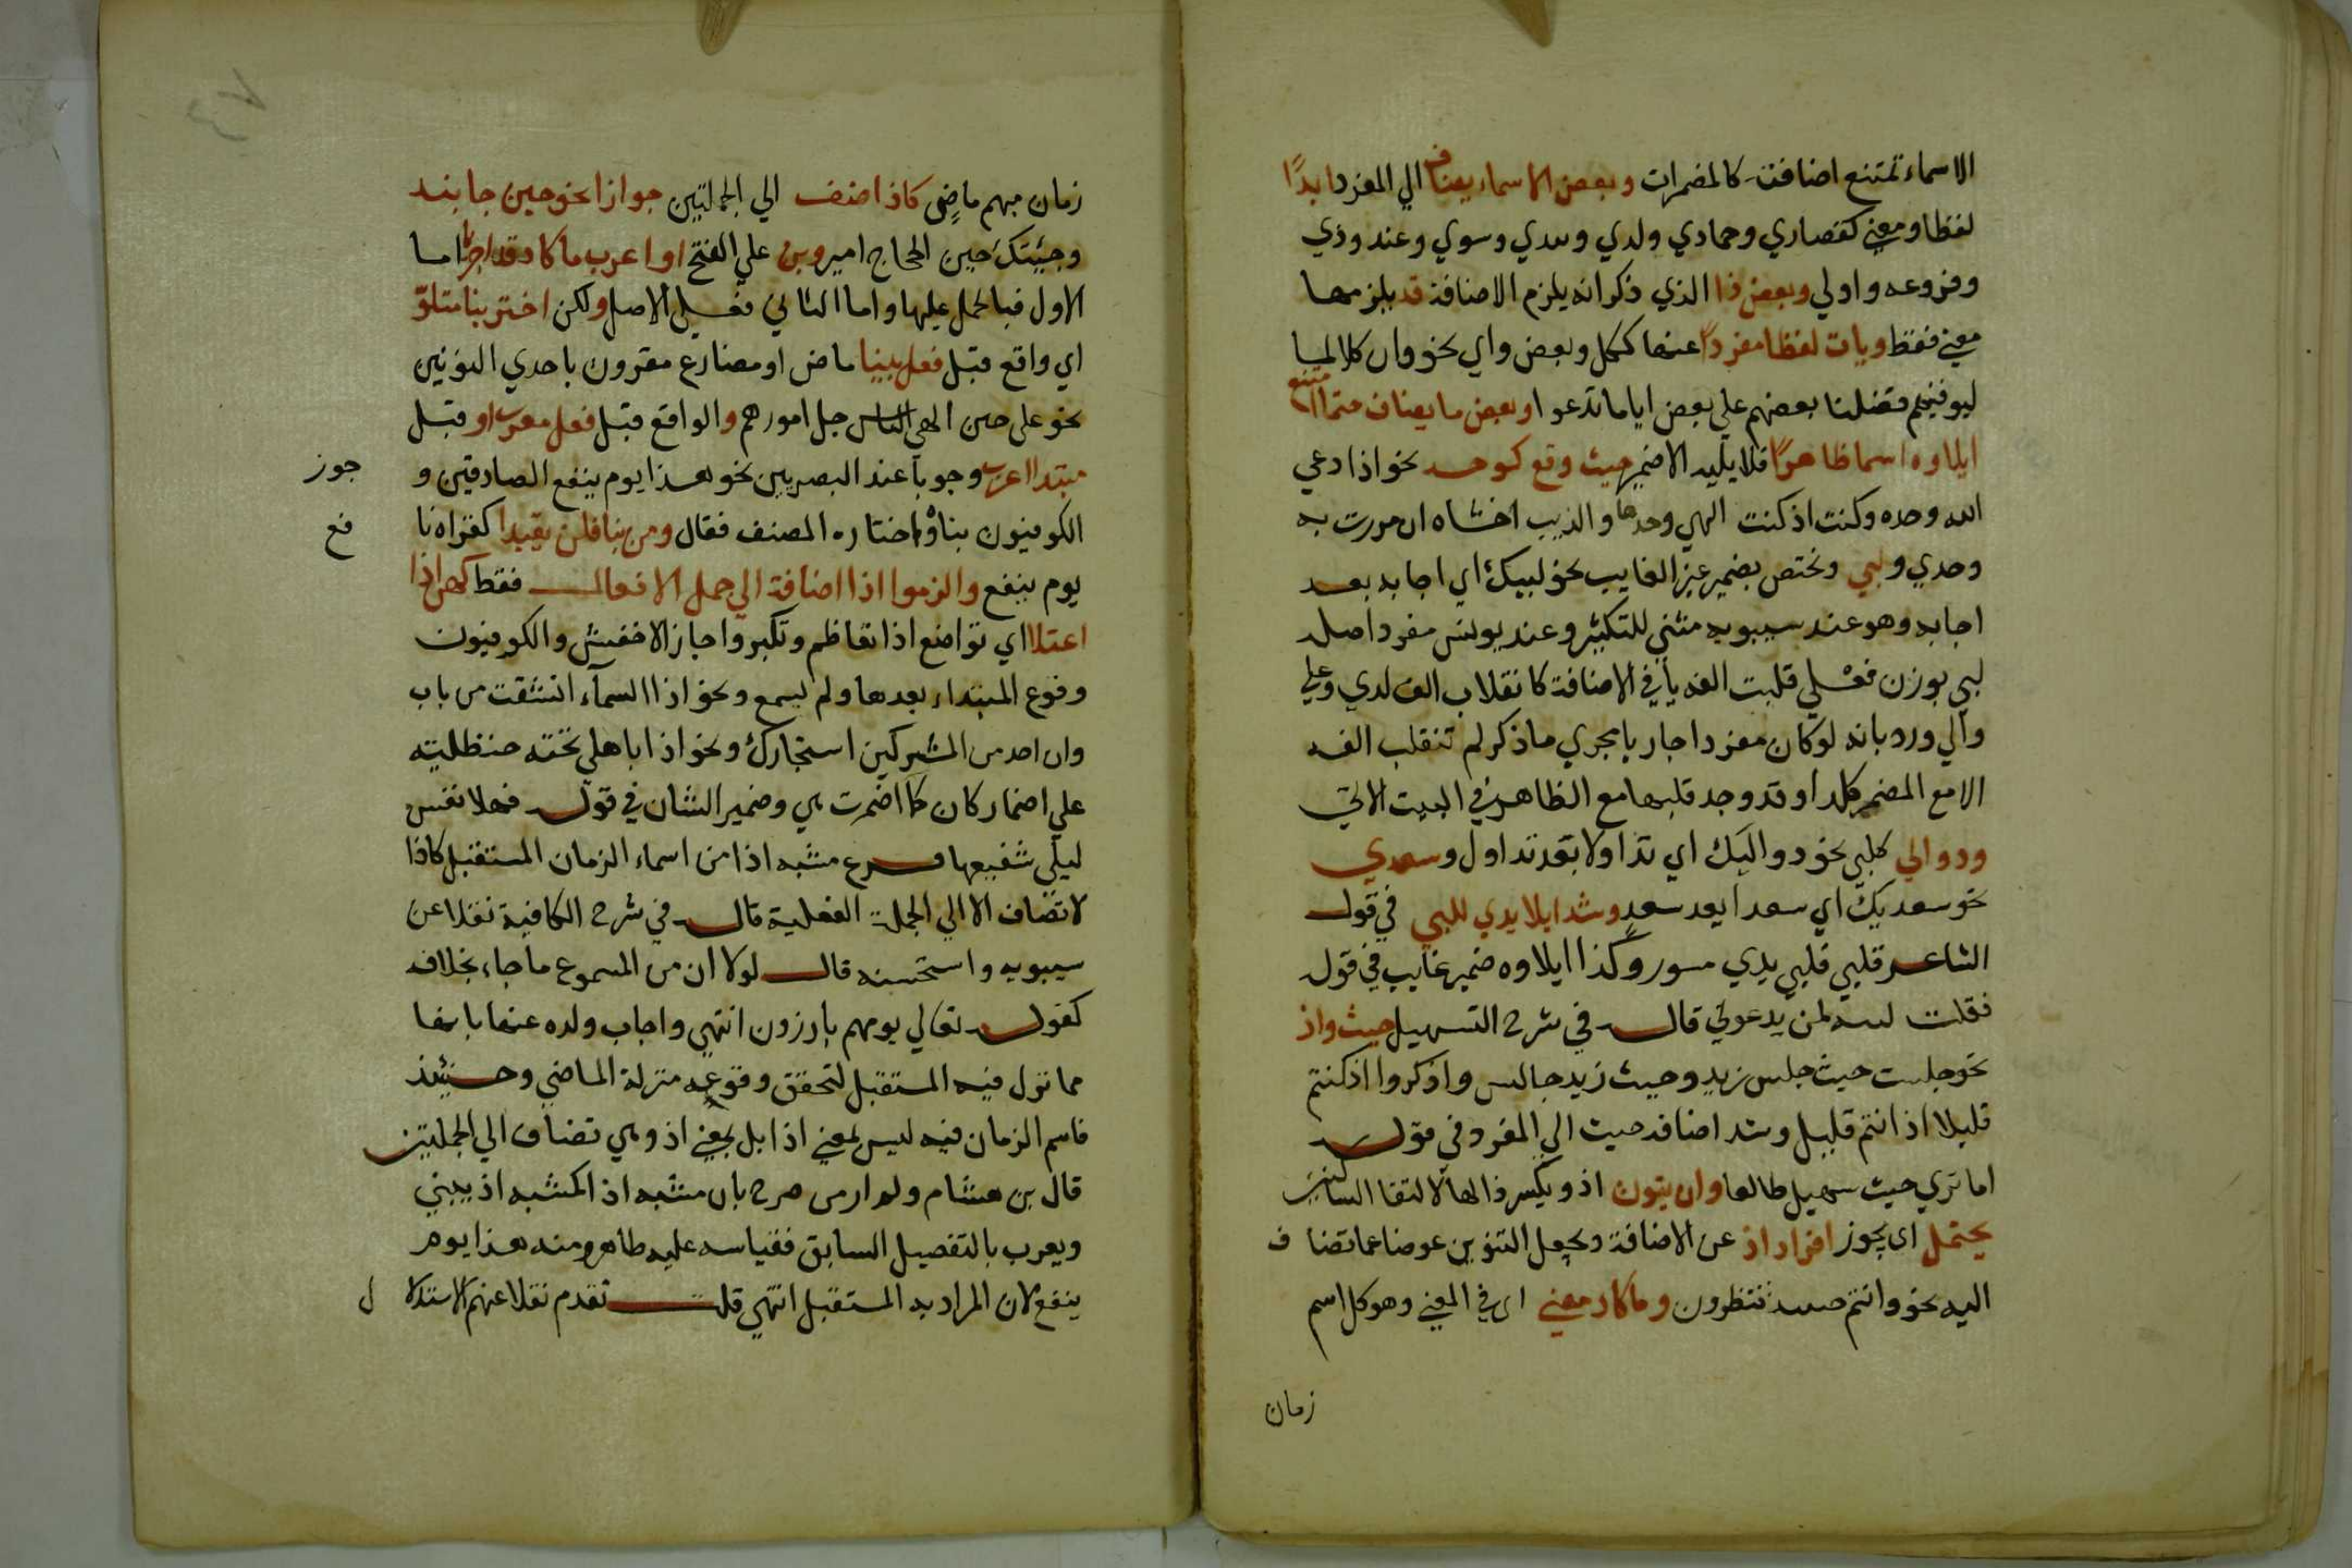 الاسماء تمتنع اضافته كالمضمرات وبعض الاسماء يضاف الي المفرد ابدًا
لفظا ومعني كقصاري وحمادي ولدي وبيدي وسوي وعند وذي
وفروعه واولي وبعض ذا الذي ذكر انه يلزم الاضافة قد يلزمها
معني فقط ويات لفظا مفردًا عنها ككل وبعض واي نحو وان كلا لما
ليوفينهم فضلنا بعضهم علي بعض اياما تدعوا وبعض ما يضاف حتما امتنع
ايلاوه اسما ظاهرًا فلا يليه الا ضمير حيث وقع كوحد نحو اذا دعي
الله وحده وكنت اذ كنت الهي وحدها والذيب اخشاه ان مررت به
وحدي ولبي وتختص بضمير غير الغايب نحو لبيك اي اجابه بعد
اجابه وهو عند سيبويه مثني للتكثير وعند يونس مفرد اصله
لبي بوزن فعلي قلبت الفه يا في الاضافة كانقلاب الف لدي وعلي
والي ورد بانه لو كان مفردا جاريا مجري ما ذكر لم تنقلب الفه
الا مع المضمر كلدا وقد وجد قلبها مع الظاهر في البيت الاتي
ودوالي كلبي نحو دواليك اي تداولا بعد تداول وسعدي
نحو سعديك اي سعدا بعد سعدٍ وشد ايلا يدي للبي في قول
الشاعر قلبي فلبي يدي مسور وكذا ايلاوه ضمير غايب في قول
فقلت لبيه لمن يدعوني قال في شرح التسهيل حيث واذ
نحو جلست حيث جلس زيد وحيث زيد جالس واذكروا اذ كنتم
قليلا اذ انتم قليل وشد اضافة حيث الي المفرد في قوله
اما تري حيث سهيل طالعا وان ينون اذ ويكسر ذالها لالتقا الساكنين
يحتمل اي يجوز افراد اذ عن الاضافة ويجعل التنوين عوضا عما تضاف
اليه نحو وانتم حينيذ تنظرون وما كاذ معني اي في المعني وهو كل اسم
زمان
زمان مبهم ماضٍ كاذ اضف الي الجملتين جوازا نحو حين جا نبذ
وجيتك حين الحجاج امير وبن علي الفتح او اعرب ما كاذ قد اجريا اما
الاول فبالحمل عليها واما الثاني فعلي الاصل ولكن اختر بنا متلوّ
اي واقع قبل فعل بنيا ماض او مضارع مقرون باحدي النونين
نحو علي حين الهي الناس جل امورهم والواقع قبل فعل معرب او قبل
مبتدا اعرب وجوبا عند البصريين نحو هذا يوم ينفع الصادقين و
جوز
الكوفيون بناؤه واختاره المصنف فقال ومن بنا فلن يفندا كقراة نا
فع
يوم ينفع والزموا اذا اضافة الي جمل الافعال فقط كهن اذا
اعتلا اي تواضع اذا تعاظم وتكبر واجاز الاخفش والكوفيون
وقوع المبتداء بعدها ولم يسمع ونحو اذا السماء انشقت من باب
وان احد من المشركين استجارك ونحو اذا باهلي تحته حنظلية
علي اضمار كان كما اضمرت هي وضمير الشان في قوله فهلا نفس
ليلي شفيعها فرع مشبه اذا من اسماء الزمان المستقبل كاذا
لا تضاف الا الي الجملة الفعلية قال في شرح الكافية نقلا عن
سيبويه واستحسنه قال لولا ان من المسموع ما جاء بخلافه
كقوله تعالي يوم هم بارزون انتهي واجاب ولده عنها بانها
مما نزل فيه المستقبل لتحقق وقوعه منزلة الماضي وحينئذ
فاسم الزمان فيه ليس بمعني اذا بل بمعني اذ وهي تضاف الي الجملتين
قال بن هشام ولم ار من صرح بان مشبه اذا كمشبه اذ يبني
ويعرب بالتفصيل السابق فقياسه عليه ظاهر ومنه هذا يوم
ينفع لان المراد به المستقبل انتهي قلت تقدم نقلا عنهم الاستدلال